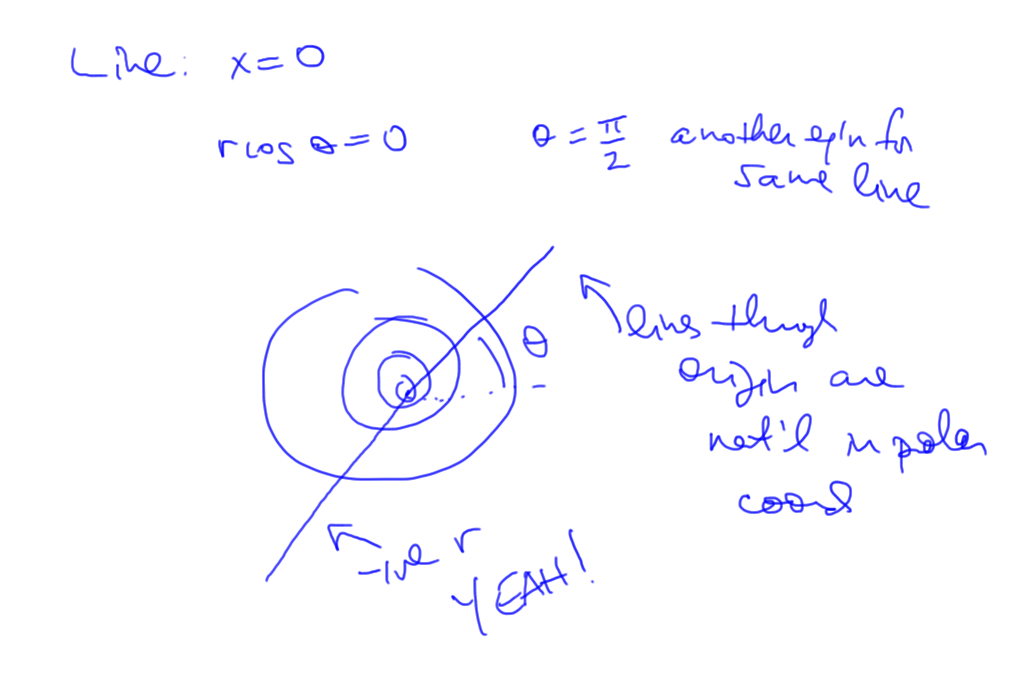 Line: x=0
r cos θ = 0
θ = π/2 another eq'n for
same line
θ
lines through
origin are
nat'l in polar
coord
-ive r
YEAH!